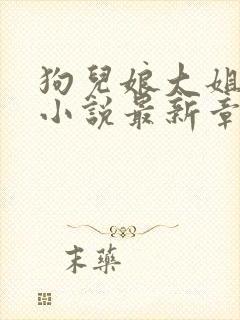 狗兒娘大姐
小說最新章
末藥